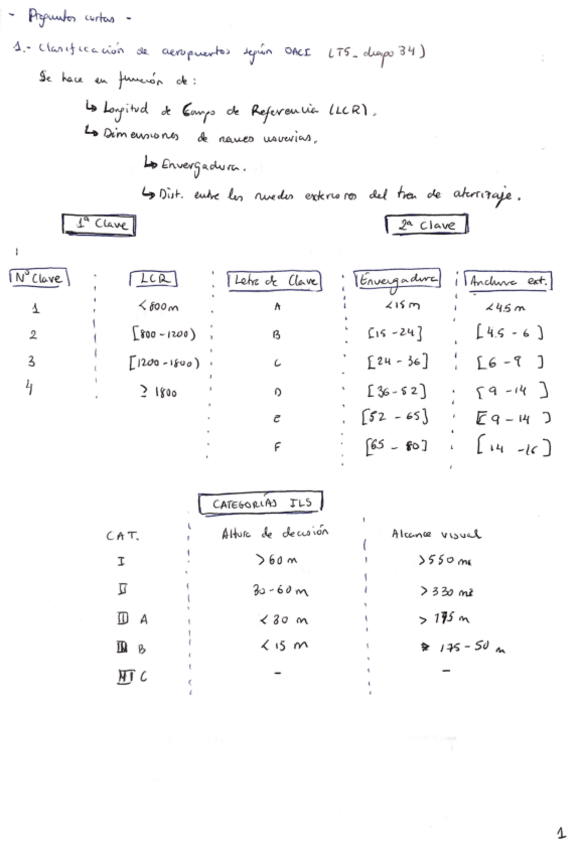 - Preguntas cortas -
1.- Clasificación de aeropuertos según OACI (T5_diapo 34)
Se hace en función de:
↳ Longitud de Campo de Referencia (LCR).
↳ Dimensiones de naves usuarias.
↳ Envergadura.
↳ Dist. entre las ruedas exteriores del tren de aterrizaje.
1ª Clave 2ª Clave
Nº Clave LCR Letra de Clave Envergadura Anchura ext.
1 <800m A <15 m <4.5m
2 [800-1200) B [15-24] [4.5 - 6]
3 [1200-1800) C [24 - 36] [6 - 9]
4 ≥ 1800 D [36-52] [9 -14]
E [52 - 65] [9 - 14]
F [65 - 80] [14 -16]
CATEGORÍAS ILS
CAT. Altura de decisión Alcance visual
I >60 m >550 m
II 30-60 m >330 m
III A <30 m > 175 m
III B <15 m 175 - 50 m
III C - -
1